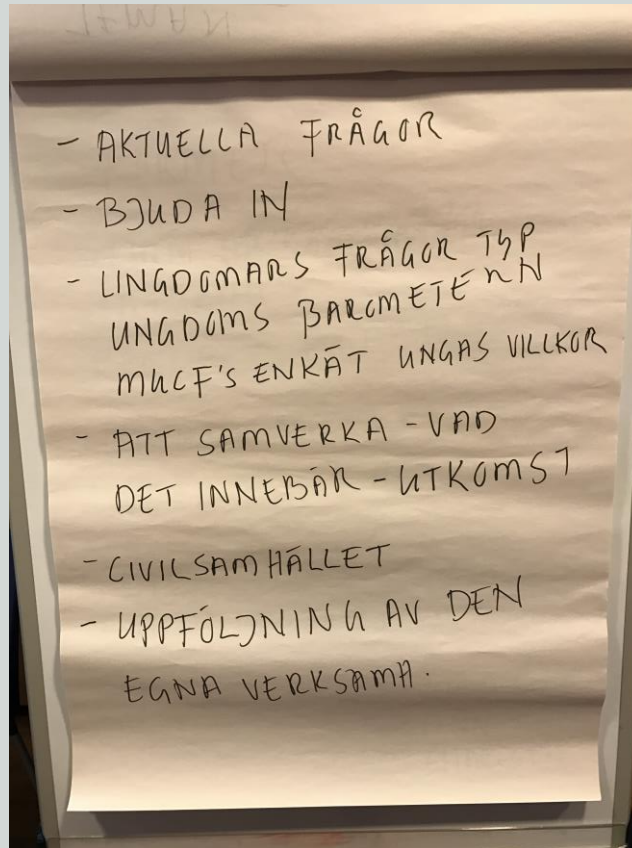 - AKTUELLA FRÅGOR
- BJUDA IN
- UNGDOMARS FRÅGOR TYP
UNGDOMS BAROMETERN
MUCF'S ENKÄT UNGAS VILLKOR
- ATT SAMVERKA - VAD
DET INNEBÄR - UTKOMST
- CIVILSAMHÄLLET
- UPPFÖLJNING AV DEN
EGNA VERKSAMH.